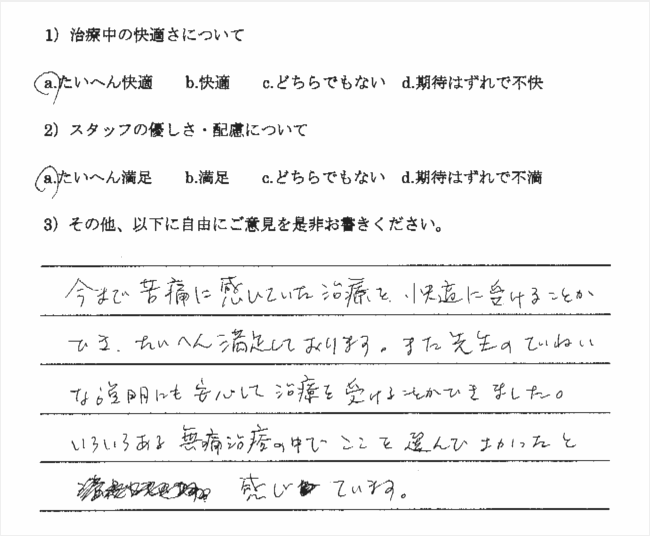 1）治療中の快適さについて
a.たいへん快適　b.快適　c.どちらでもない　d.期待はずれで不快
2）スタッフの優しさ・配慮について
a.たいへん満足　b.満足　c.どちらでもない　d.期待はずれで不満
3）その他、以下に自由にご意見を是非お書きください。
今まで苦痛に感じていた治療を、快適に受けることが
でき、たいへん満足しております。また先生のていねい
な説明にも安心して治療を受けることができました。
いろいろある無痛治療の中でここを選んでよかったと
感じています。